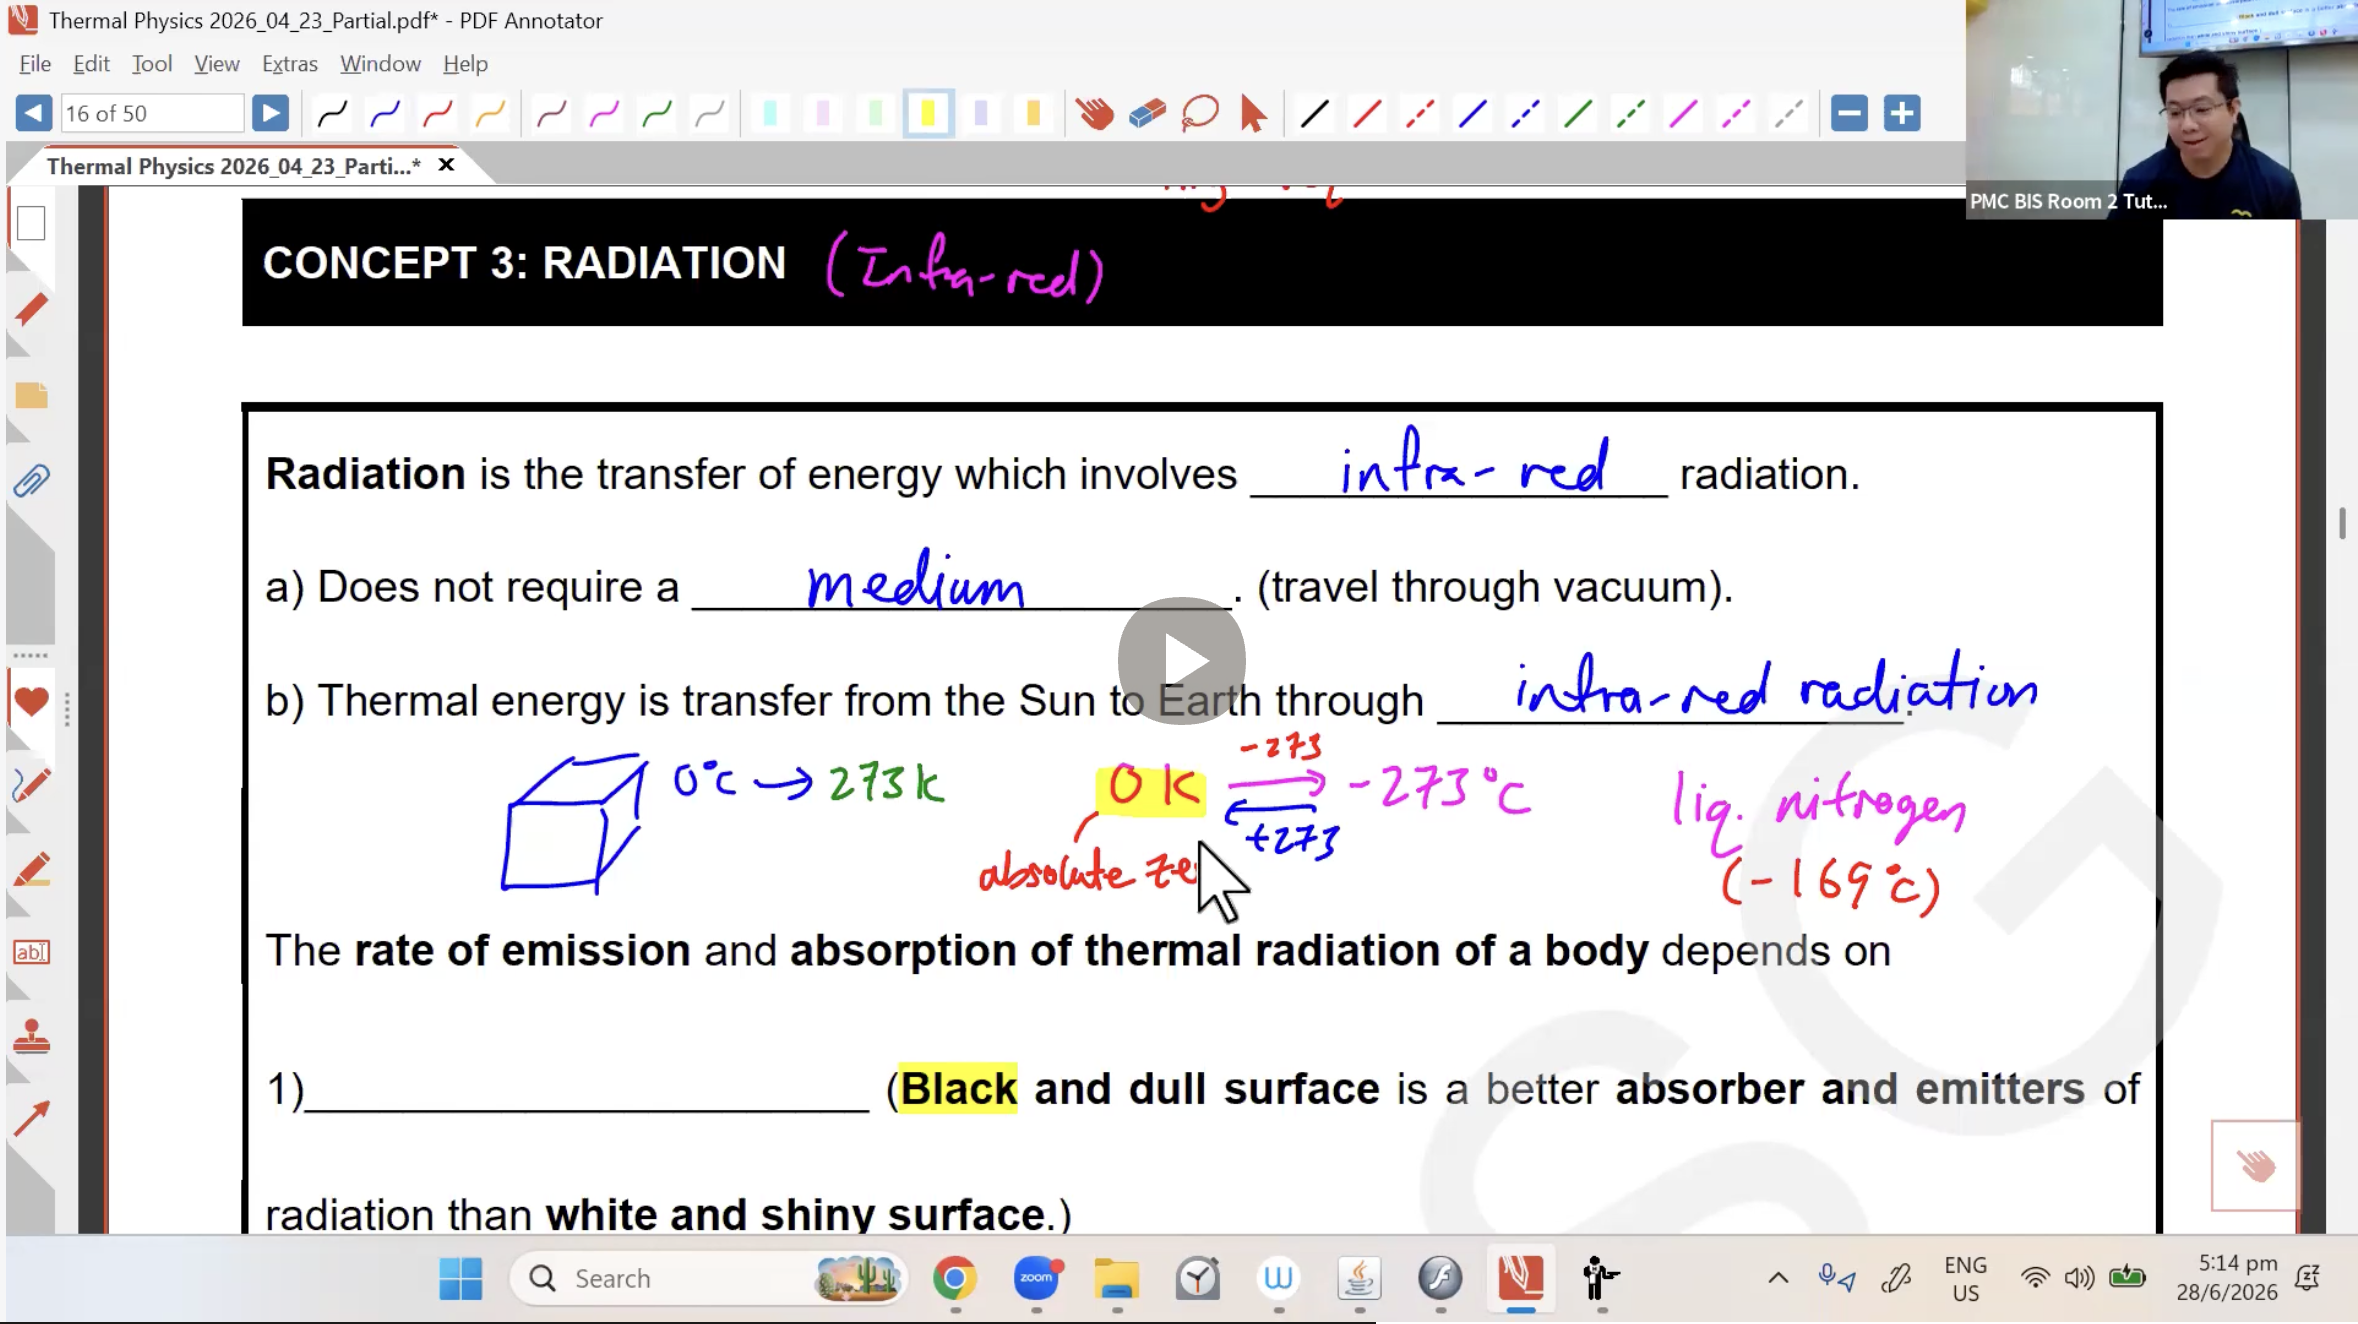 Thermal Physics 2026_04_23_Partial.pdf* - PDF Annotator
File Edit Tool View Extras Window Help
16 of 50
Thermal Physics 2026_04_23_Parti...*
PMC BIS Room 2 Tut...
CONCEPT 3: RADIATION (Infra-red)
Radiation is the transfer of energy which involves infra-red radiation.
a) Does not require a medium. (travel through vacuum).
b) Thermal energy is transfer from the Sun to Earth through infra-red radiation.
-273
0°C → 273K 0 K -273°C liq. nitrogen
+273
absolute (-169°C)
The rate of emission and absorption of thermal radiation of a body depends on
1)____ (Black and dull surface is a better absorber and emitters of
radiation than white and shiny surface.)
SG
abI
Search
zoom
ENG
US
5:14 pm
28/6/2026